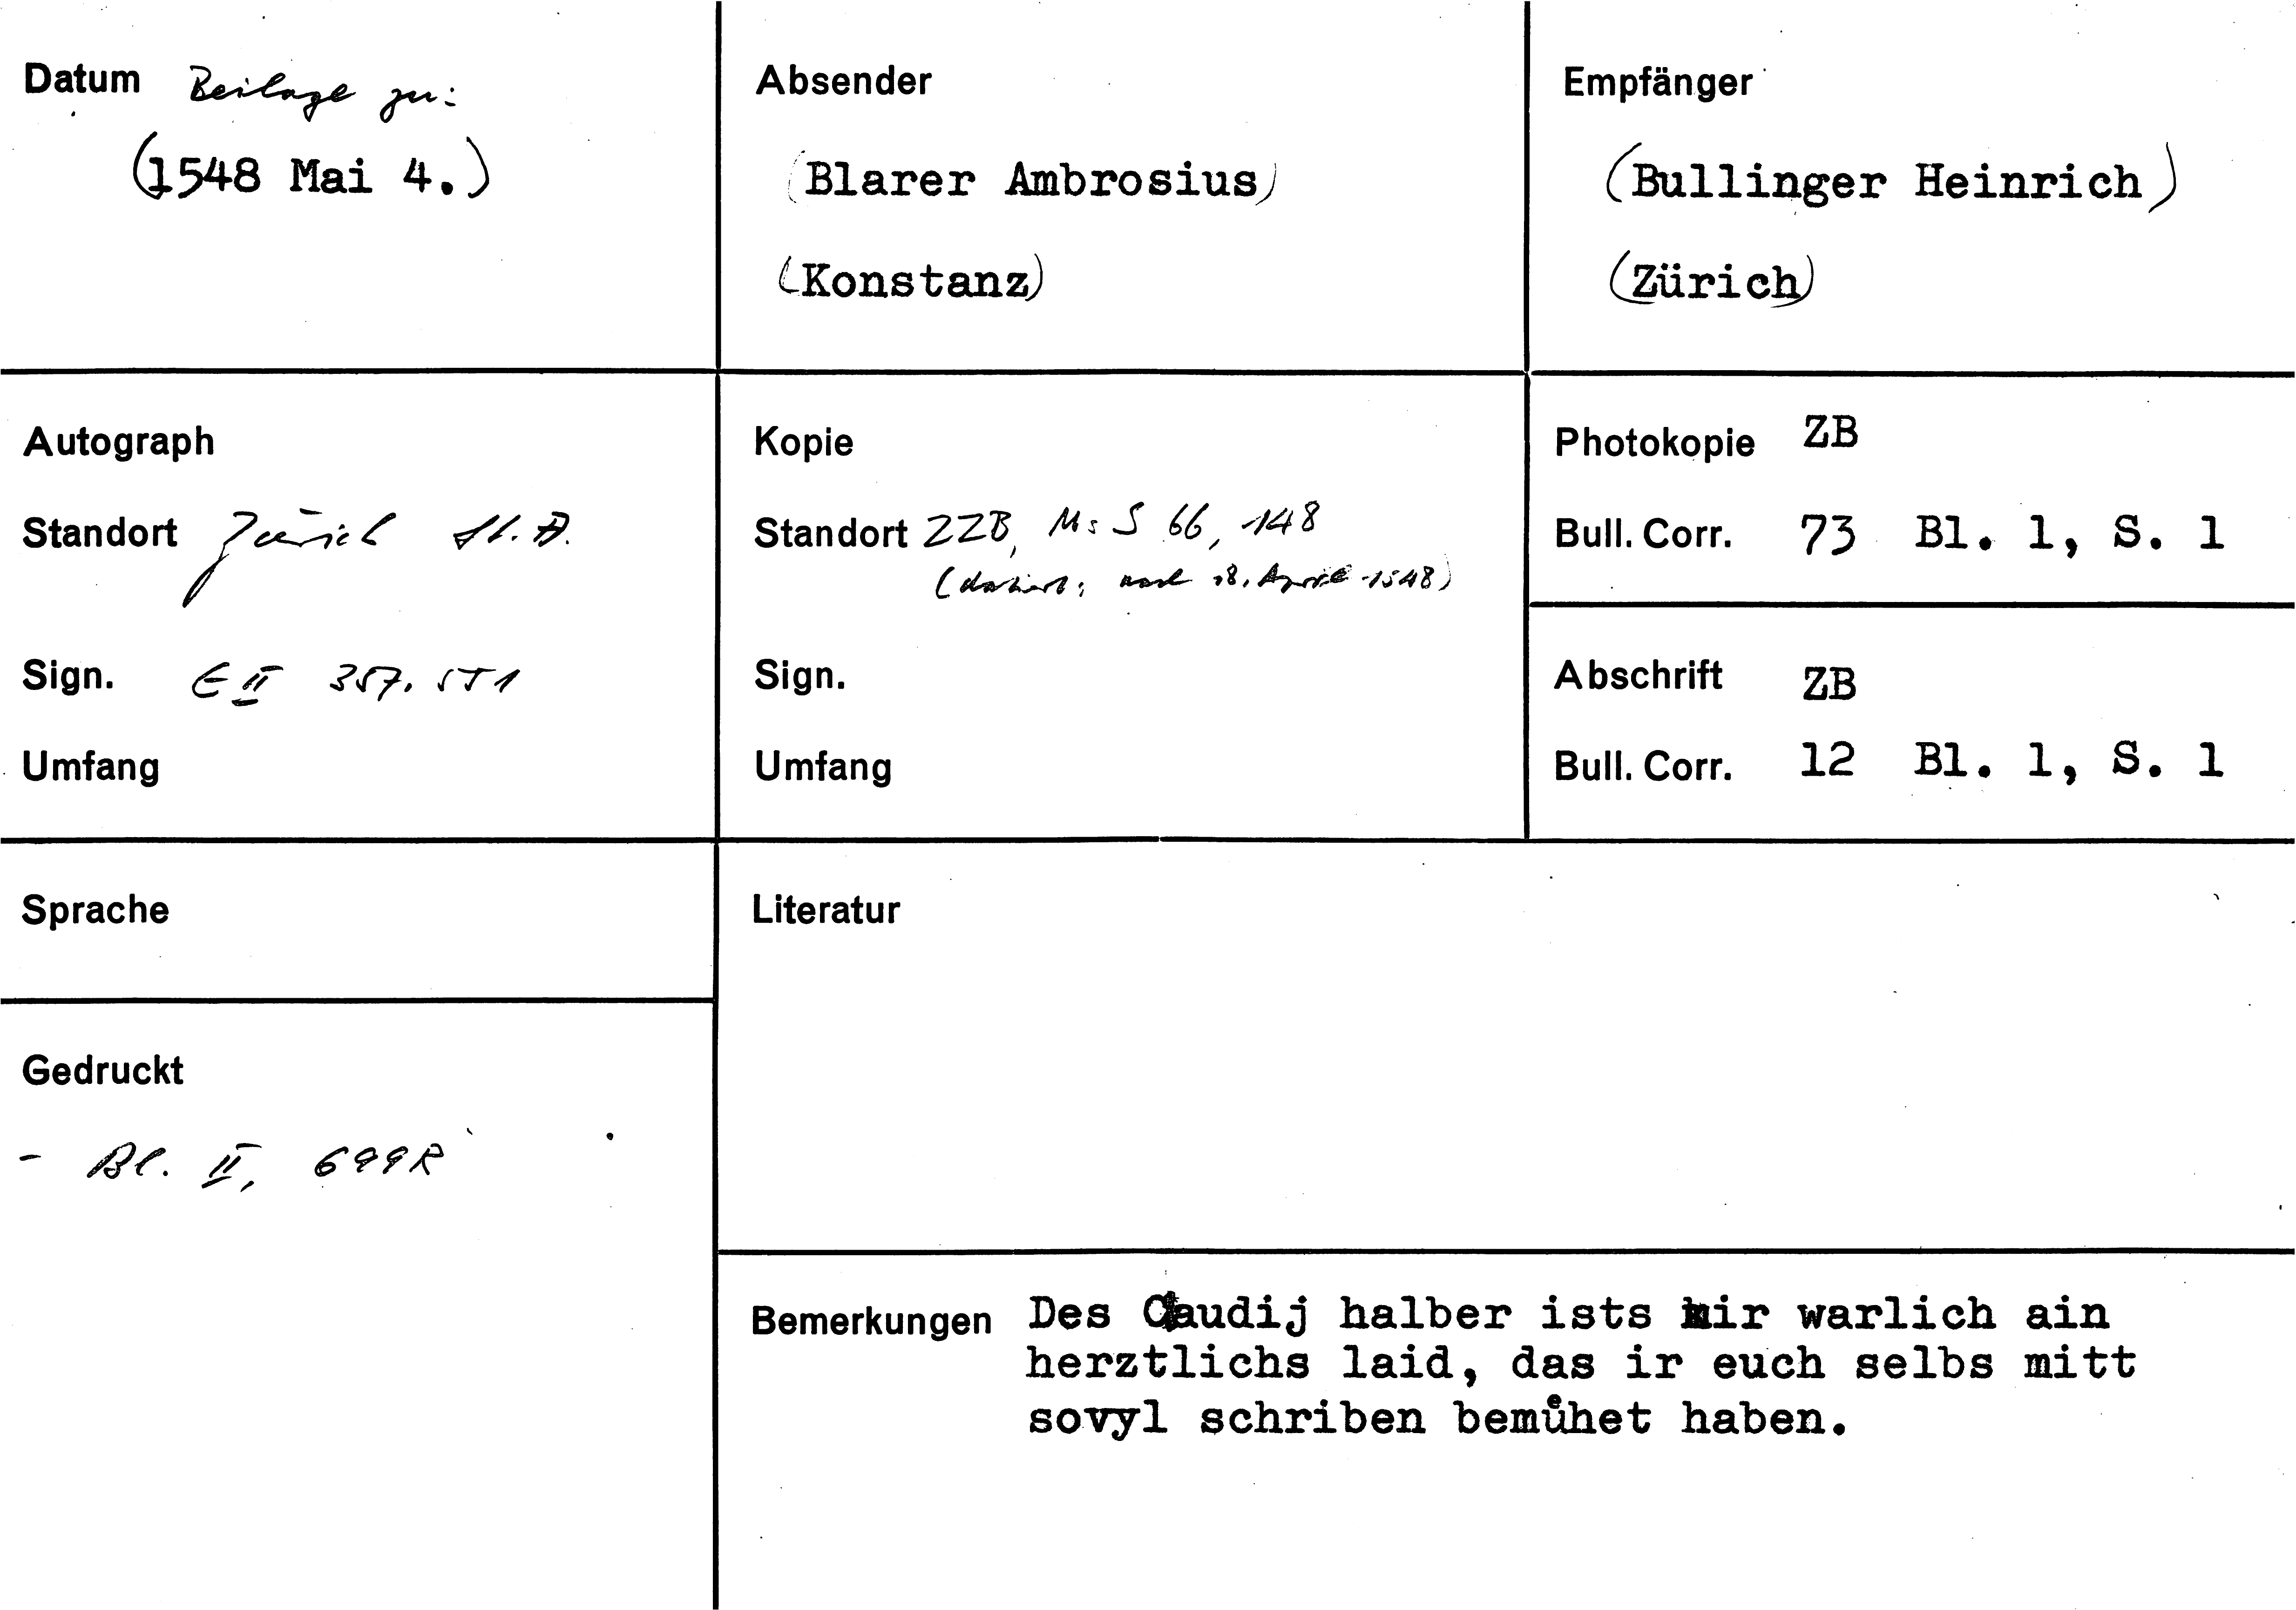 Datum Beilage zu:
(1548 Mai 4.)
Absender
(Blarer Ambrosius)
(Konstanz)
Empfänger
(Bullinger Heinrich)
(Zürich)
Autograph
Standort Zürich St.A.
Sign. E II 357, 551
Umfang
Kopie
Standort ZZB, Ms S 66, 148
(datiert: nach 18. April 1548)
Sign.
Umfang
Photokopie ZB
Bull. Corr. 73 Bl. 1, S. 1
Abschrift ZB
Bull. Corr. 12 Bl. 1, S. 1
Sprache
Gedruckt
- Bl. II, 699R
Literatur
Bemerkungen Des Claudij halber ists mir warlich ain
herztlichs laid, das ir euch selbs mitt
sovyl schriben bemůhet haben.